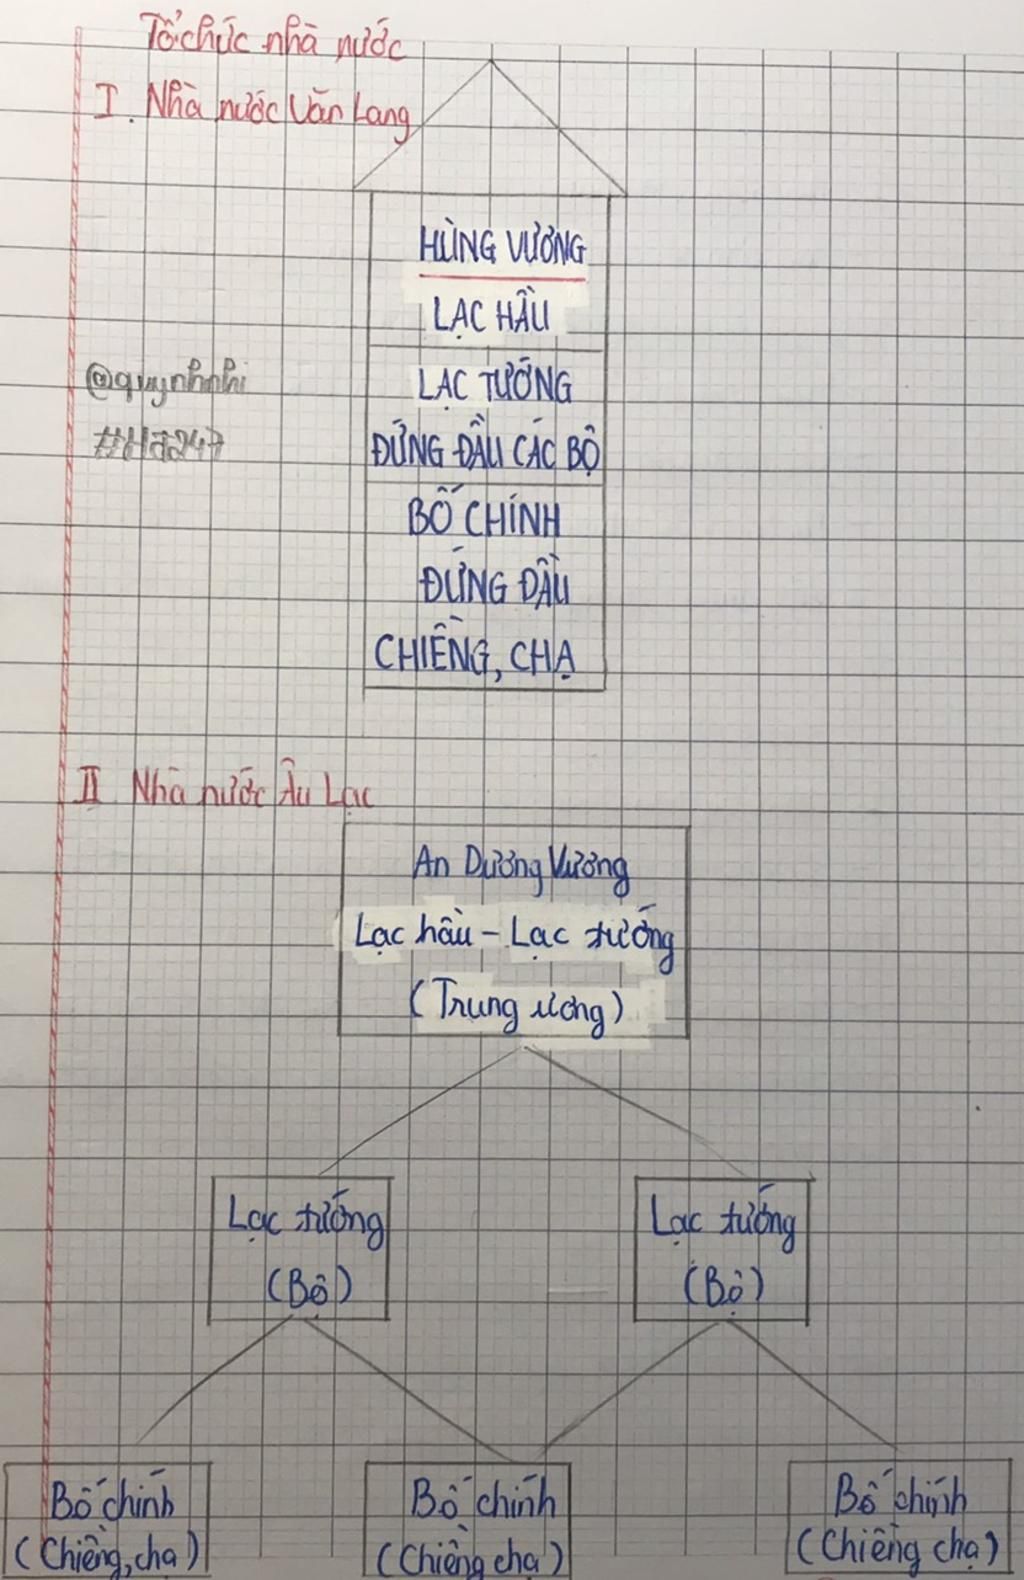 Tổ chức nhà nước
I. Nhà nước Văn Lang
HÙNG VƯƠNG
LẠC HẦU
@quynhnhi
LẠC TƯỚNG
#Hđ247
ĐỨNG ĐẦU CÁC BỘ
BỐ CHÍNH
ĐỨNG ĐẦU
CHIỀNG, CHẠ
II Nhà nước Âu Lạc
An Dương Vương
Lạc hầu - Lạc tướng
(Trung ương)
Lạc tướng
(Bộ)
Lạc tướng
(Bộ)
Bố chính
(Chiềng, chạ)
Bố chính
(Chiềng chạ)
Bố chính
(Chiềng chạ)